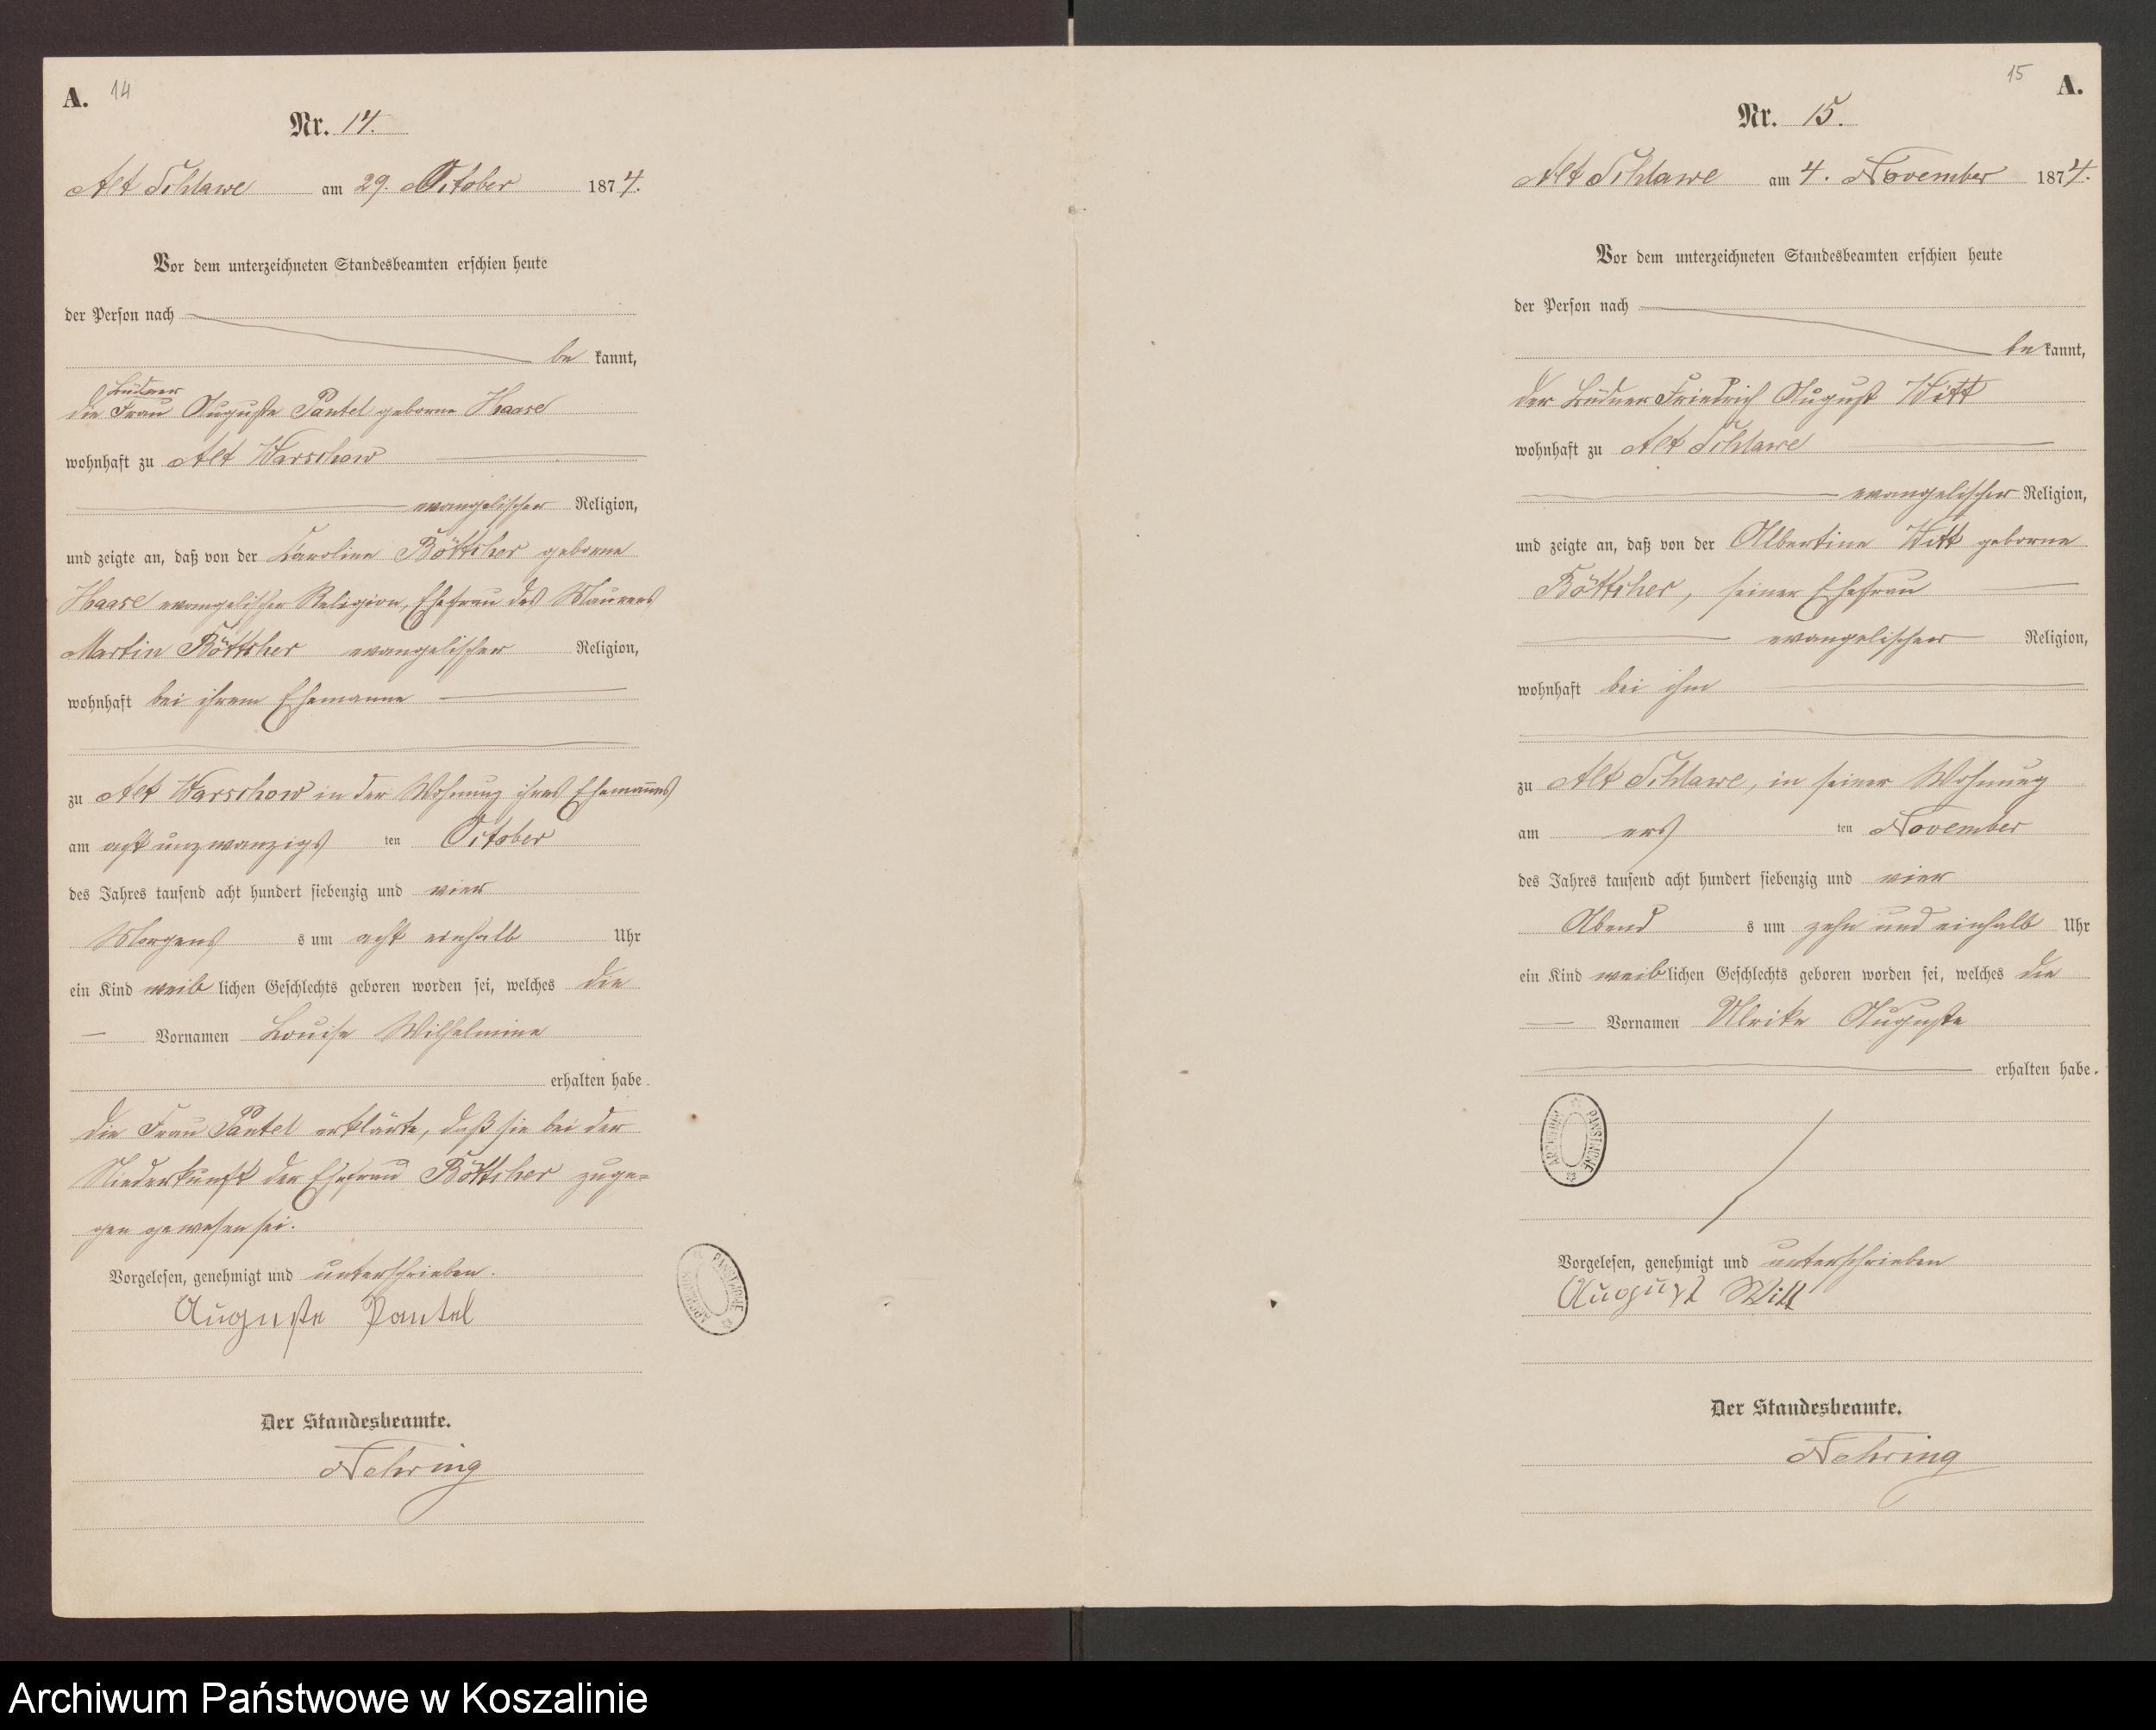 A. 14
Nr. 14.
Alt Schlawe am 29. October 1874.
Vor dem unterzeichneten Standesbeamten erschien heute
der Person nach
be kannt,
Büdner
die Frau Auguste Pantel geborne Haase
wohnhaft zu Alt Warschow
evangelischer Religion,
und zeigte an, daß von der Caroline Böttcher geborne
Haase evangelischer Religion, Ehefrau des Maurers
Martin Böttcher evangelischer Religion,
wohnhaft bei ihrem Ehemanne
zu Alt Warschow in der Wohnung ihres Ehemannes
am acht unzwanzigs ten October
des Jahres tausend acht hundert siebenzig und vier
Morgens s um acht einhalb Uhr
ein Kind weib lichen Geschlechts geboren worden sei, welches die
Vornamen Louise Wilhelmine
erhalten habe.
Die Frau Pantel erklärte, daß sie bei der
Niederkunft der Ehefrau Böttcher zuge=
gen gewesen sei.
Vorgelesen, genehmigt und unterschrieben.
Auguste Pantel
ARCHIWUM PAŃSTWOWE
Der Standesbeamte.
Nehring
15 A.
Nr. 15.
Alt Schlawe am 4. November 1874.
Vor dem unterzeichneten Standesbeamten erschien heute
der Person nach
be kannt,
der Büdner Friedrich August Witt
wohnhaft zu Alt Schlawe
evangelischer Religion,
und zeigte an, daß von der Albertine Witt geborne
Böttcher, seiner Ehefrau
evangelischer Religion,
wohnhaft bei ihm
zu Alt Schlawe, in seiner Wohnung
am ers ten November
des Jahres tausend acht hundert siebenzig und vier
Abend s um zehn und einhalb Uhr
ein Kind weib lichen Geschlechts geboren worden sei, welches die
Vornamen Ulrike Auguste
erhalten habe.
ARCHIWUM PAŃSTWOWE
Vorgelesen, genehmigt und unterschrieben
August Witt
Der Standesbeamte.
Nehring
Archiwum Państwowe w Koszalinie